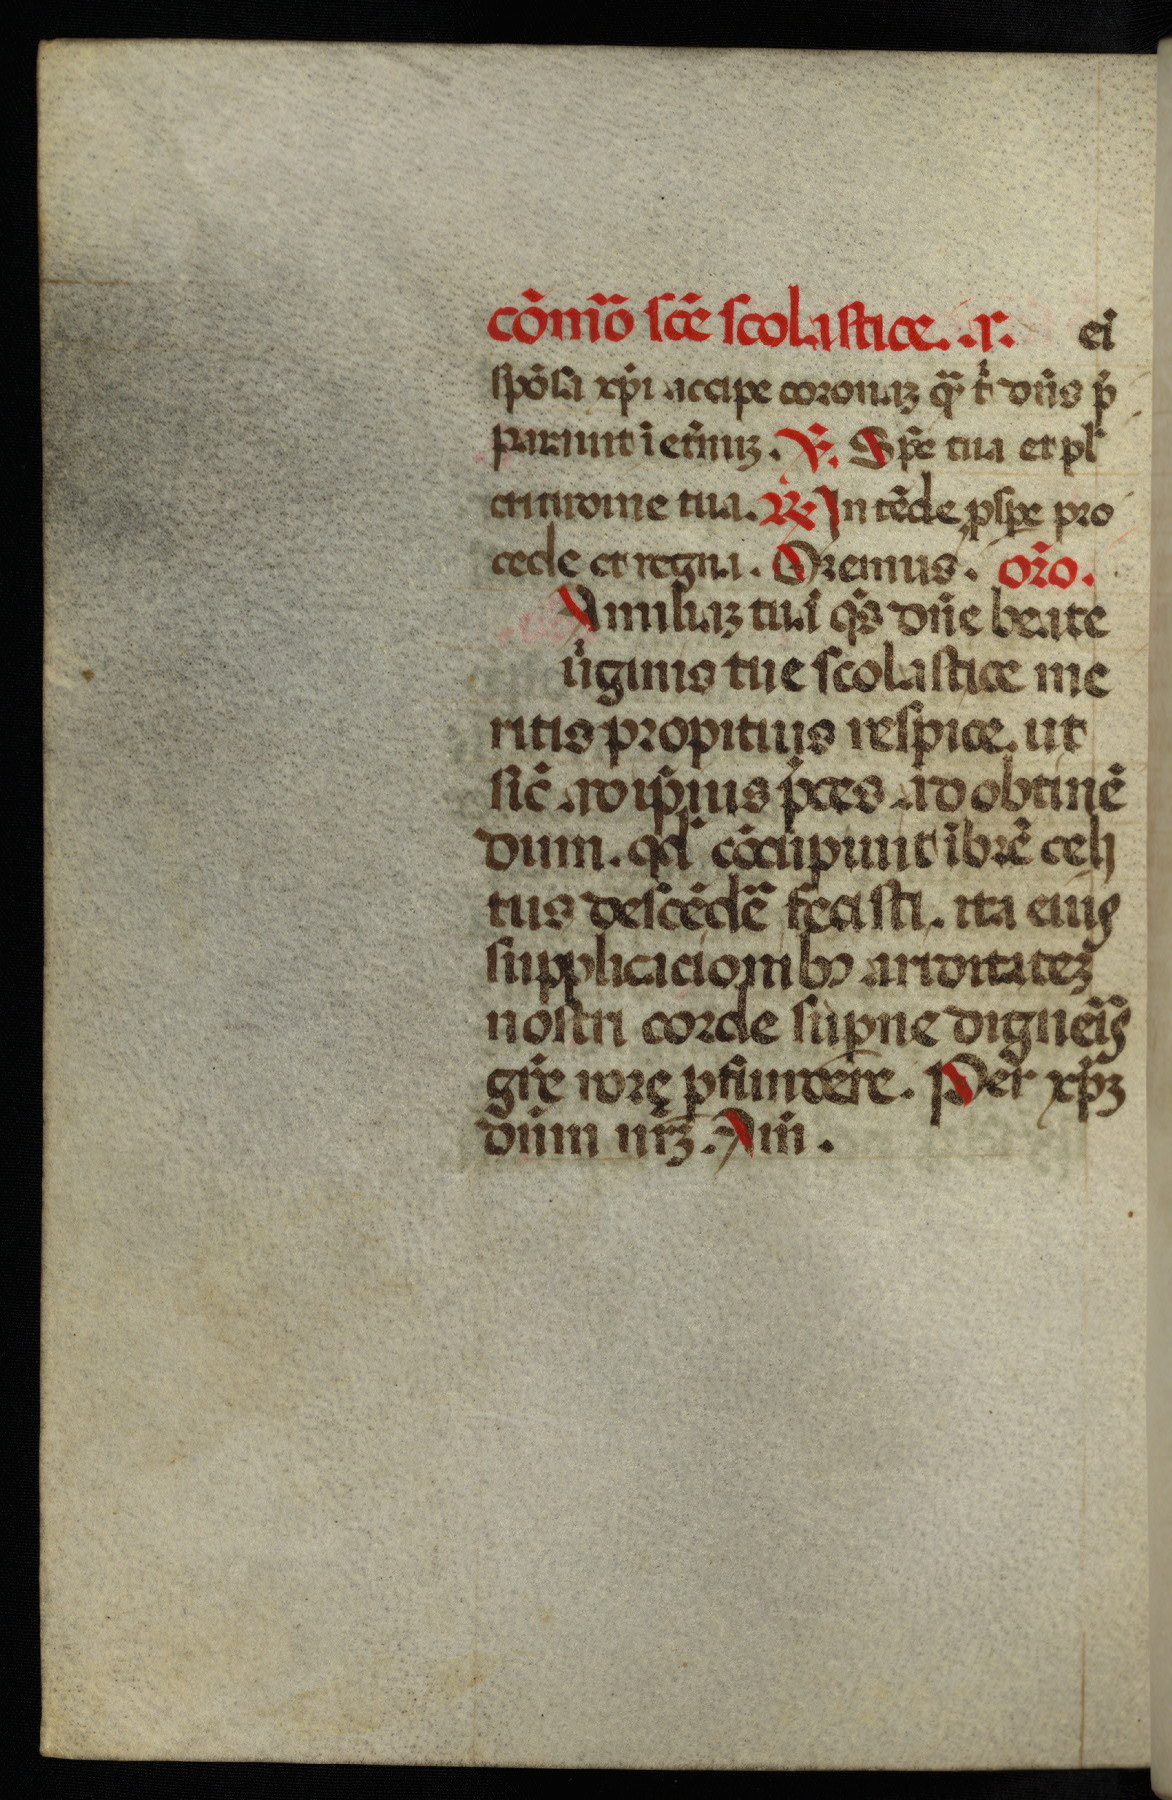 cōm̄o sc̄e scolastice. .r. ei
spōsa xp̄i accipe coronaꝫ qᷓ t̄ dn̄s p̄
parauit ī et̄nuꝫ. ℣. Sp̄e tua et pl̄
critudine tua. ℟ Intēde ꝓspe pro
cede et regna. Oremus. or̄o.
Amiliaꝫ tuā qs̄ dn̄e beate
v̄ginis tue scolastice me
ritis propitius respice. ut
sic̄ ad ip̄ius p̄ces ad obtinē
dum. qd̄ cōcupiuit ībrē celi
tus descēdē fecisti. ita eiuꝯ
supplicacionibꝫ ariditateꝫ
nostri cordę sup̄ne dignēꝯ
gr̄e rorę ꝑfundere. Per xp̄ꝫ
dn̄m nr̄ꝫ. Am̄.